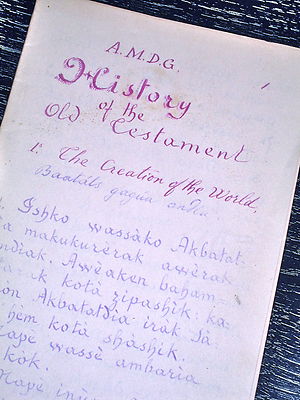 A.M.D.G.
History
of the
Old Testament
1. The Creation of the World.
Baatàls gagua
1. Ishko wassàko Akbatat-
a makukurèrak awèrak
ndiak. Awèaken baham-
kotè zipashìk: ka
on Akbatatdia iràk. Sà
hèm kotè shàshik.
Hape wassè ambaria
kòk.
Hapè